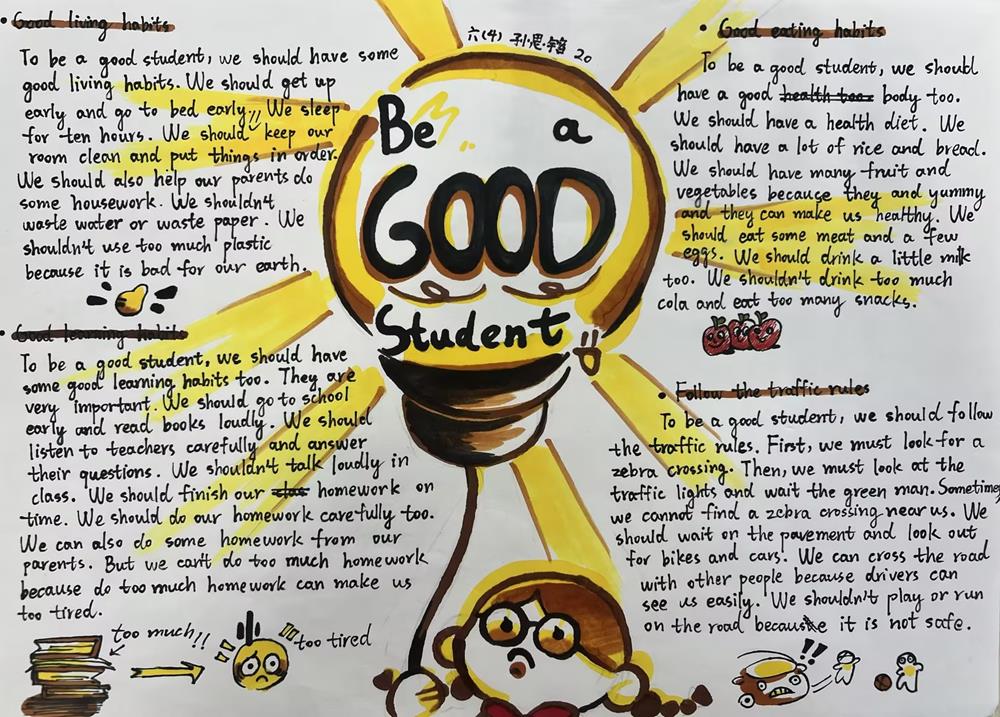 六(4) 孙·思·
20
Be a
GOOD
Student
• Good living habits
To be a good student, we should have some
good living habits. We should get up
early and go to bed early. We sleep
for ten hours. We should keep our
room clean and put things in order.
We should also help our parents do
some housework. We shouldn't
waste water or waste paper. We
shouldn't use too much plastic
because it is bad for our earth.
• Good learning habits
To be a good student, we should have
some good learning habits too. They are
very important. We should go to school
early and read books loudly. We should
listen to teachers carefully and answer
their questions. We shouldn't talk loudly in
class. We should finish our class homework on
time. We should do our homework carefully too.
We can also do some homework from our
parents. But we can't do too much homework
because do too much homework can make us
too tired.
too much!!
too tired
• Good eating habits
To be a good student, we should
have a good health too. body too.
We should have a health diet. We
should have a lot of rice and bread.
We should have many fruit and
vegetables because they and yummy
and they can make us healthy. We
should eat some meat and a few
eggs. We should drink a little milk
too. We shouldn't drink too much
cola and eat too many snacks.
• Follow the traffic rules
To be a good student, we should follow
the traffic rules. First, we must look for a
zebra crossing. Then, we must look at the
traffic lights and wait the green man. Sometimes
we cannot find a zebra crossing near us. We
should wait on the pavement and look out
for bikes and cars. We can cross the road
with other people because drivers can
see us easily. We shouldn't play or run
on the road because it is not safe.
!!